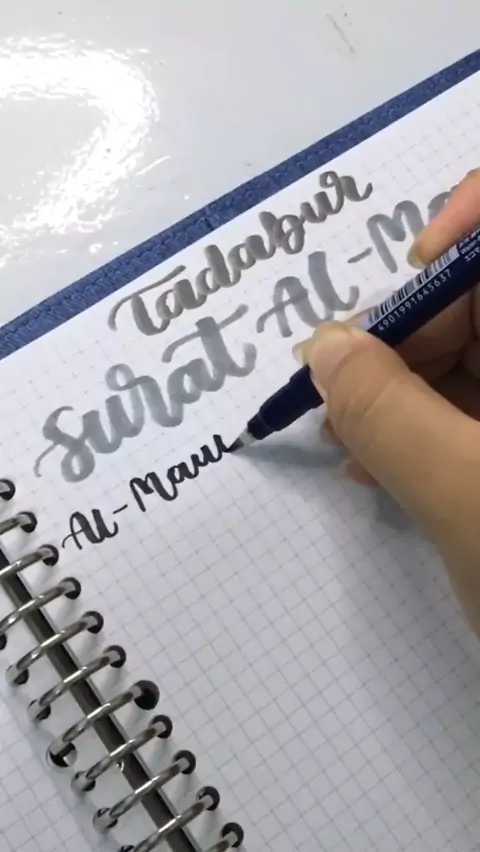 Tadabur
Surat Al-Ma
Al-Mau
4901991645637